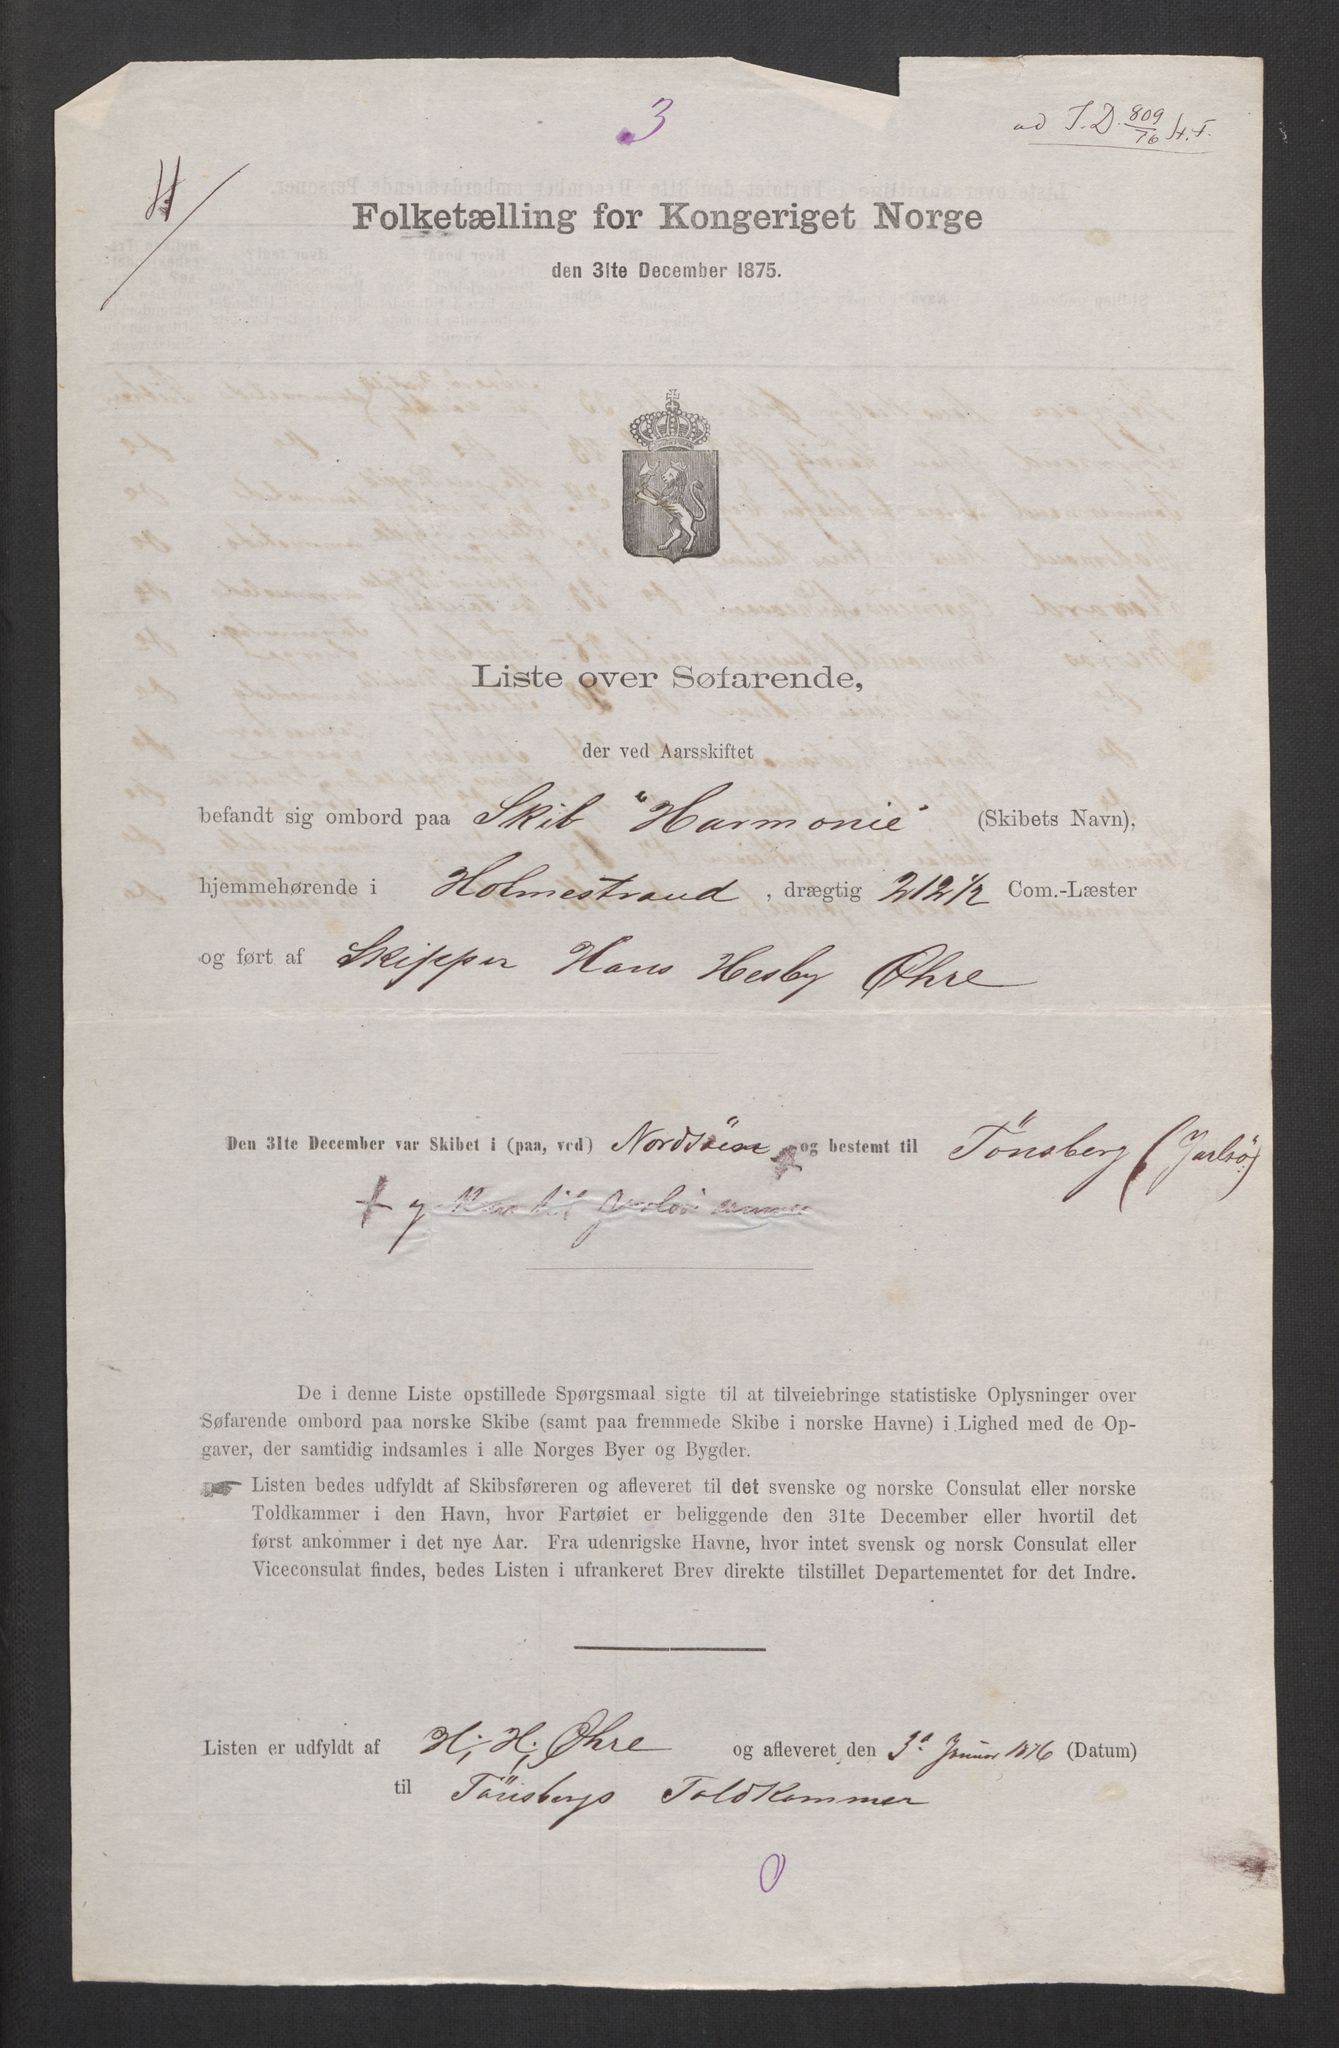 3
ad I. D. 809/76 H. F.
Folketælling for Kongeriget Norge
den 31te December 1875.
Liste over Søfarende,
der ved Aarsskiftet
befandt sig ombord paa Skib "Harmonie" (Skibets Navn),
hjemmehørende i Holmestrand, drægtig 212 1/2 Com.-Læster
og ført af Skipper Hans Hesby Øhre
Den 31te December var Skibet i (paa, ved) Nordsöen og bestemt til Tönsberg (Jarlsö)
De i denne Liste opstillede Spørgsmaal sigte til at tilveiebringe statistiske Oplysninger over
Søfarende ombord paa norske Skibe (samt paa fremmede Skibe i norske Havne) i Lighed med de Op-
gaver, der samtidig indsamles i alle Norges Byer og Bygder.
Listen bedes udfyldt af Skibsføreren og afleveret til det svenske og norske Consulat eller norske
Toldkammer i den Havn, hvor Fartøiet er beliggende den 31te December eller hvortil det
først ankommer i det nye Aar. Fra udenrigske Havne, hvor intet svensk og norsk Consulat eller
Viceconsulat findes, bedes Listen i ufrankeret Brev direkte tilstillet Departementet for det Indre.
Listen er udfyldt af H. H. Øhre og afleveret den 3d Januar 1876 (Datum)
til Tönsbergs Toldkammer
0